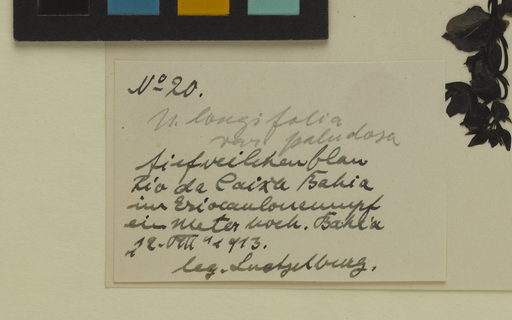 No 20.
U. longifolia
var. paludosa
tiefveilchenblau
Rio da Caixa Bahia
im Eriocaulonsumpf
ein Meter hoch. Bahia
12. VIII 1913.
leg. Luetzelburg.